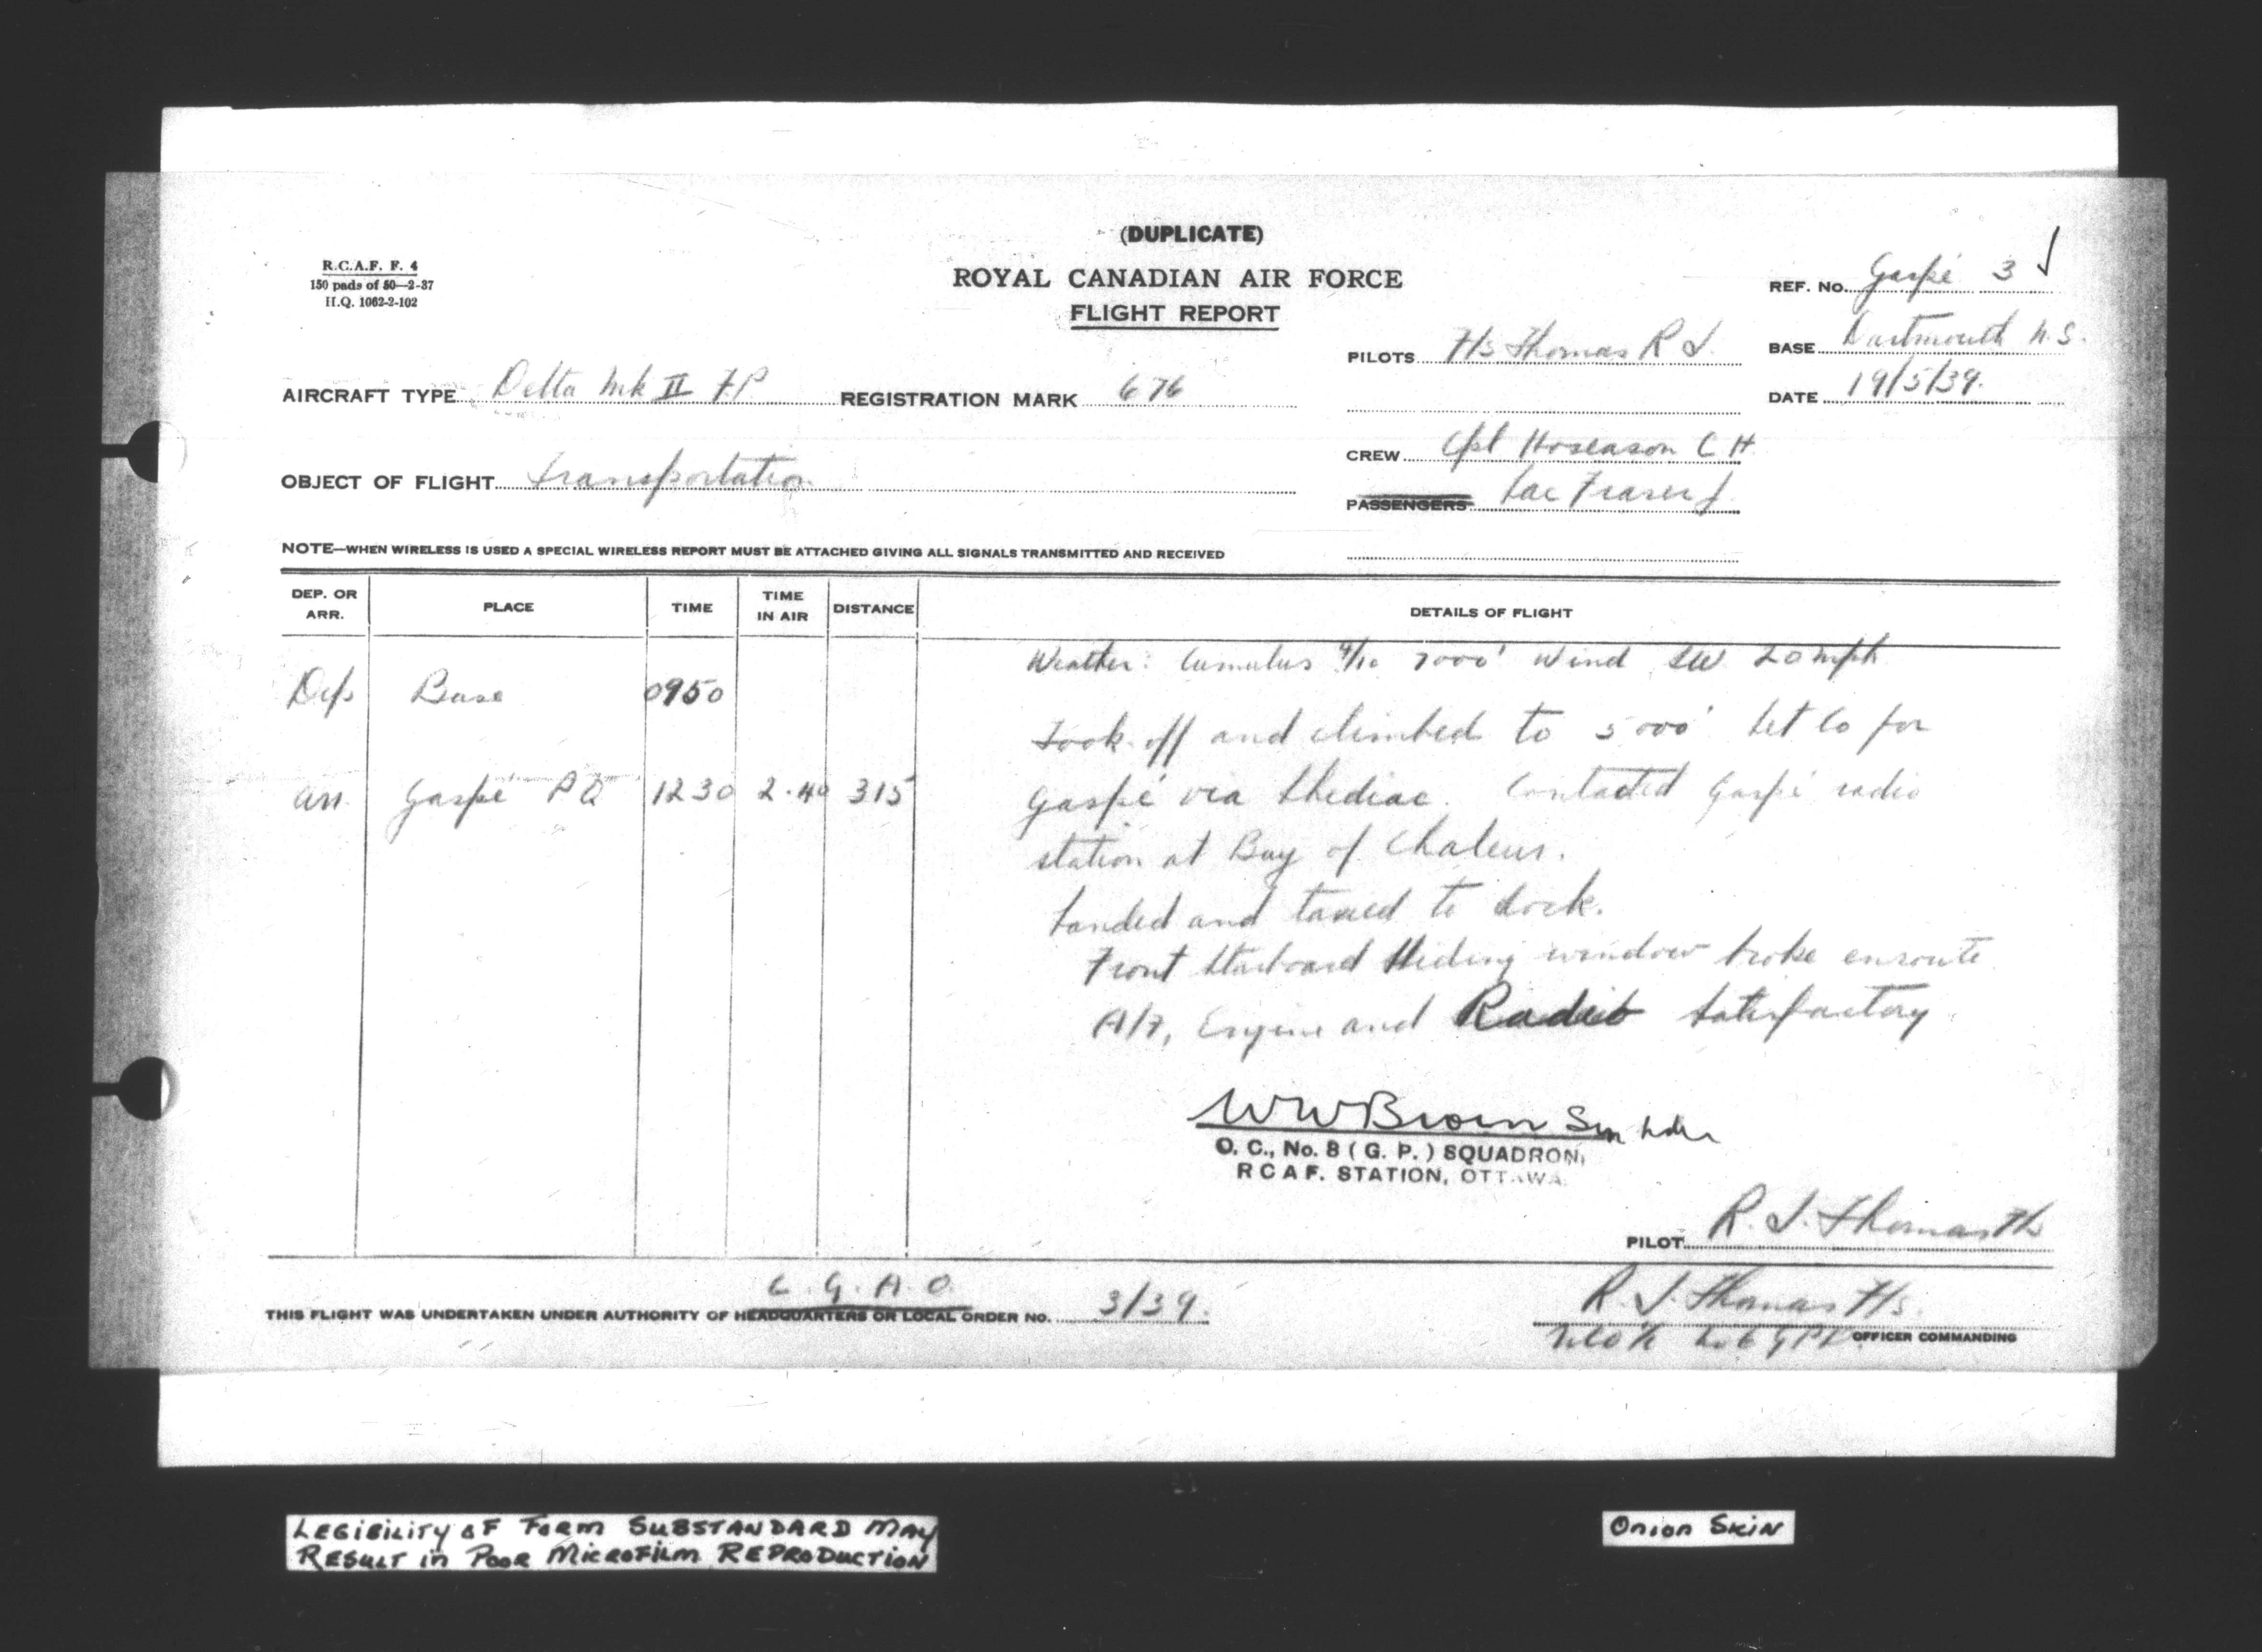 (DUPLICATE)
R.C.A.F. F. 4
150 pads of 50—2-37
H.Q. 1062-2-102
ROYAL CANADIAN AIR FORCE
FLIGHT REPORT
REF. No. Gaspé 3
PILOTS F/S Thomas R J.
BASE Dartmouth N.S.
AIRCRAFT TYPE Delta Mk II F.P. REGISTRATION MARK 676
DATE 19/5/39.
CREW Cpl Hoseason C H.
OBJECT OF FLIGHT Transportation
PASSENGERS Lac Fraser J.
NOTE—WHEN WIRELESS IS USED A SPECIAL WIRELESS REPORT MUST BE ATTACHED GIVING ALL SIGNALS TRANSMITTED AND RECEIVED
DEP. OR ARR. PLACE TIME TIME IN AIR DISTANCE DETAILS OF FLIGHT
Weather: Cumulus 4/10 7000' Wind SW 20 mph
Dep Base 0950
Took-off and climbed to 5000' Set Co for
Arr. Gaspé P Q 1230 2.40 315
Gaspé via Shediac. Contacted Gaspé radio
station at Bay of Chaleur.
Landed and taxied to dock.
Front Starboard Sliding window broke enroute
A/F, Engine and Radio Satisfactory
WW Brown Sqn Ldr
O. C., No. 8 (G. P.) SQUADRON,
R C A F. STATION, OTTAWA
PILOT R. J. Thomas
C. G. A. O.
THIS FLIGHT WAS UNDERTAKEN UNDER AUTHORITY OF HEADQUARTERS OR LOCAL ORDER NO. 3/39.
R. J. Thomas F/S.
OFFICER COMMANDING
LEGIBILITY OF FORM SUBSTANDARD MAY
RESULT IN POOR MICROFILM REPRODUCTION
ONION SKIN